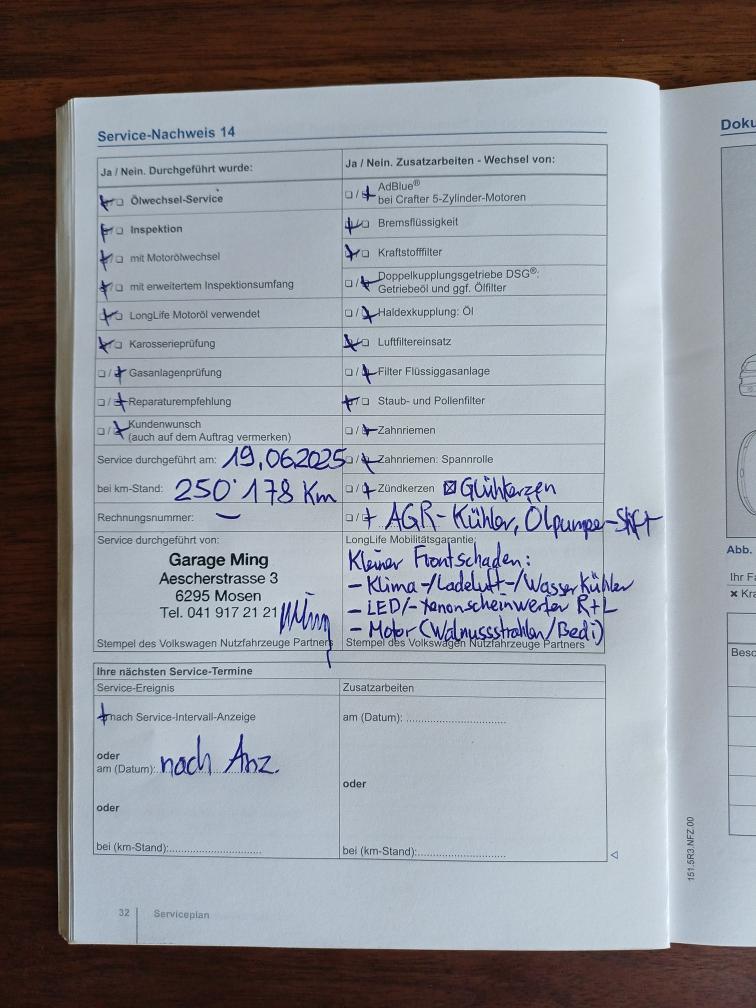 Service-Nachweis 14
Doku
Ja / Nein. Durchgeführt wurde:
Ölwechsel-Service
Inspektion
mit Motorölwechsel
mit erweitertem Inspektionsumfang
LongLife Motoröl verwendet
Karosserieprüfung
Gasanlagenprüfung
Reparaturempfehlung
Kundenwunsch
(auch auf dem Auftrag vermerken)
Service durchgeführt am: 19.06.2025
bei km-Stand: 250'178 Km
Rechnungsnummer: –
Service durchgeführt von:
Garage Ming
Aescherstrasse 3
6295 Mosen
Tel. 041 917 21 21
Stempel des Volkswagen Nutzfahrzeuge Partners
Ja / Nein. Zusatzarbeiten - Wechsel von:
AdBlue®
bei Crafter 5-Zylinder-Motoren
Bremsflüssigkeit
Kraftstofffilter
Doppelkupplungsgetriebe DSG®:
Getriebeöl und ggf. Ölfilter
Haldexkupplung: Öl
Luftfiltereinsatz
Filter Flüssiggasanlage
Staub- und Pollenfilter
Zahnriemen
Zahnriemen: Spannrolle
Zündkerzen ☒ Glühkerzen
AGR-Kühler, Ölpumpe-Stift
LongLife Mobilitätsgarantie:
Kleiner Frontschaden:
- Klima-/Ladeluft-/Wasserkühler
- LED/-Xenonscheinwerfer R+L
- Motor (Walnussstrahlen/Bedi)
Stempel des Volkswagen Nutzfahrzeuge Partners
Ihre nächsten Service-Termine
Service-Ereignis
nach Service-Intervall-Anzeige
oder
am (Datum): nach Anz.
oder
bei (km-Stand):
Zusatzarbeiten
am (Datum):
oder
bei (km-Stand):
32 Serviceplan
151.5R3.NFZ.00
Abb.
Ihr Fa
× Kra
Besc